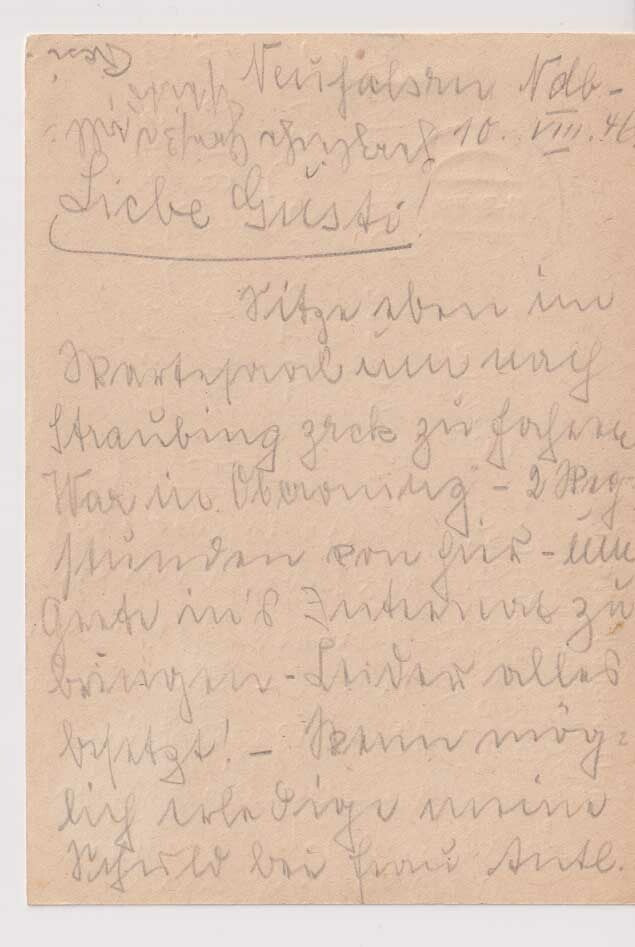 Neufahrn Ndb-
10. VIII. 46.
Liebe Gusti!
Sitze eben im
Wartesaal um nach
Straubing zrck zu fahren
War in Oberroning - 2 Weg-
stunden von hier - um
Grete in's Internat zu
bringen - Leider alles
besetzt! - Wenn mög-
lich erledige meine
Schuld bei Frau Antl.
Resi